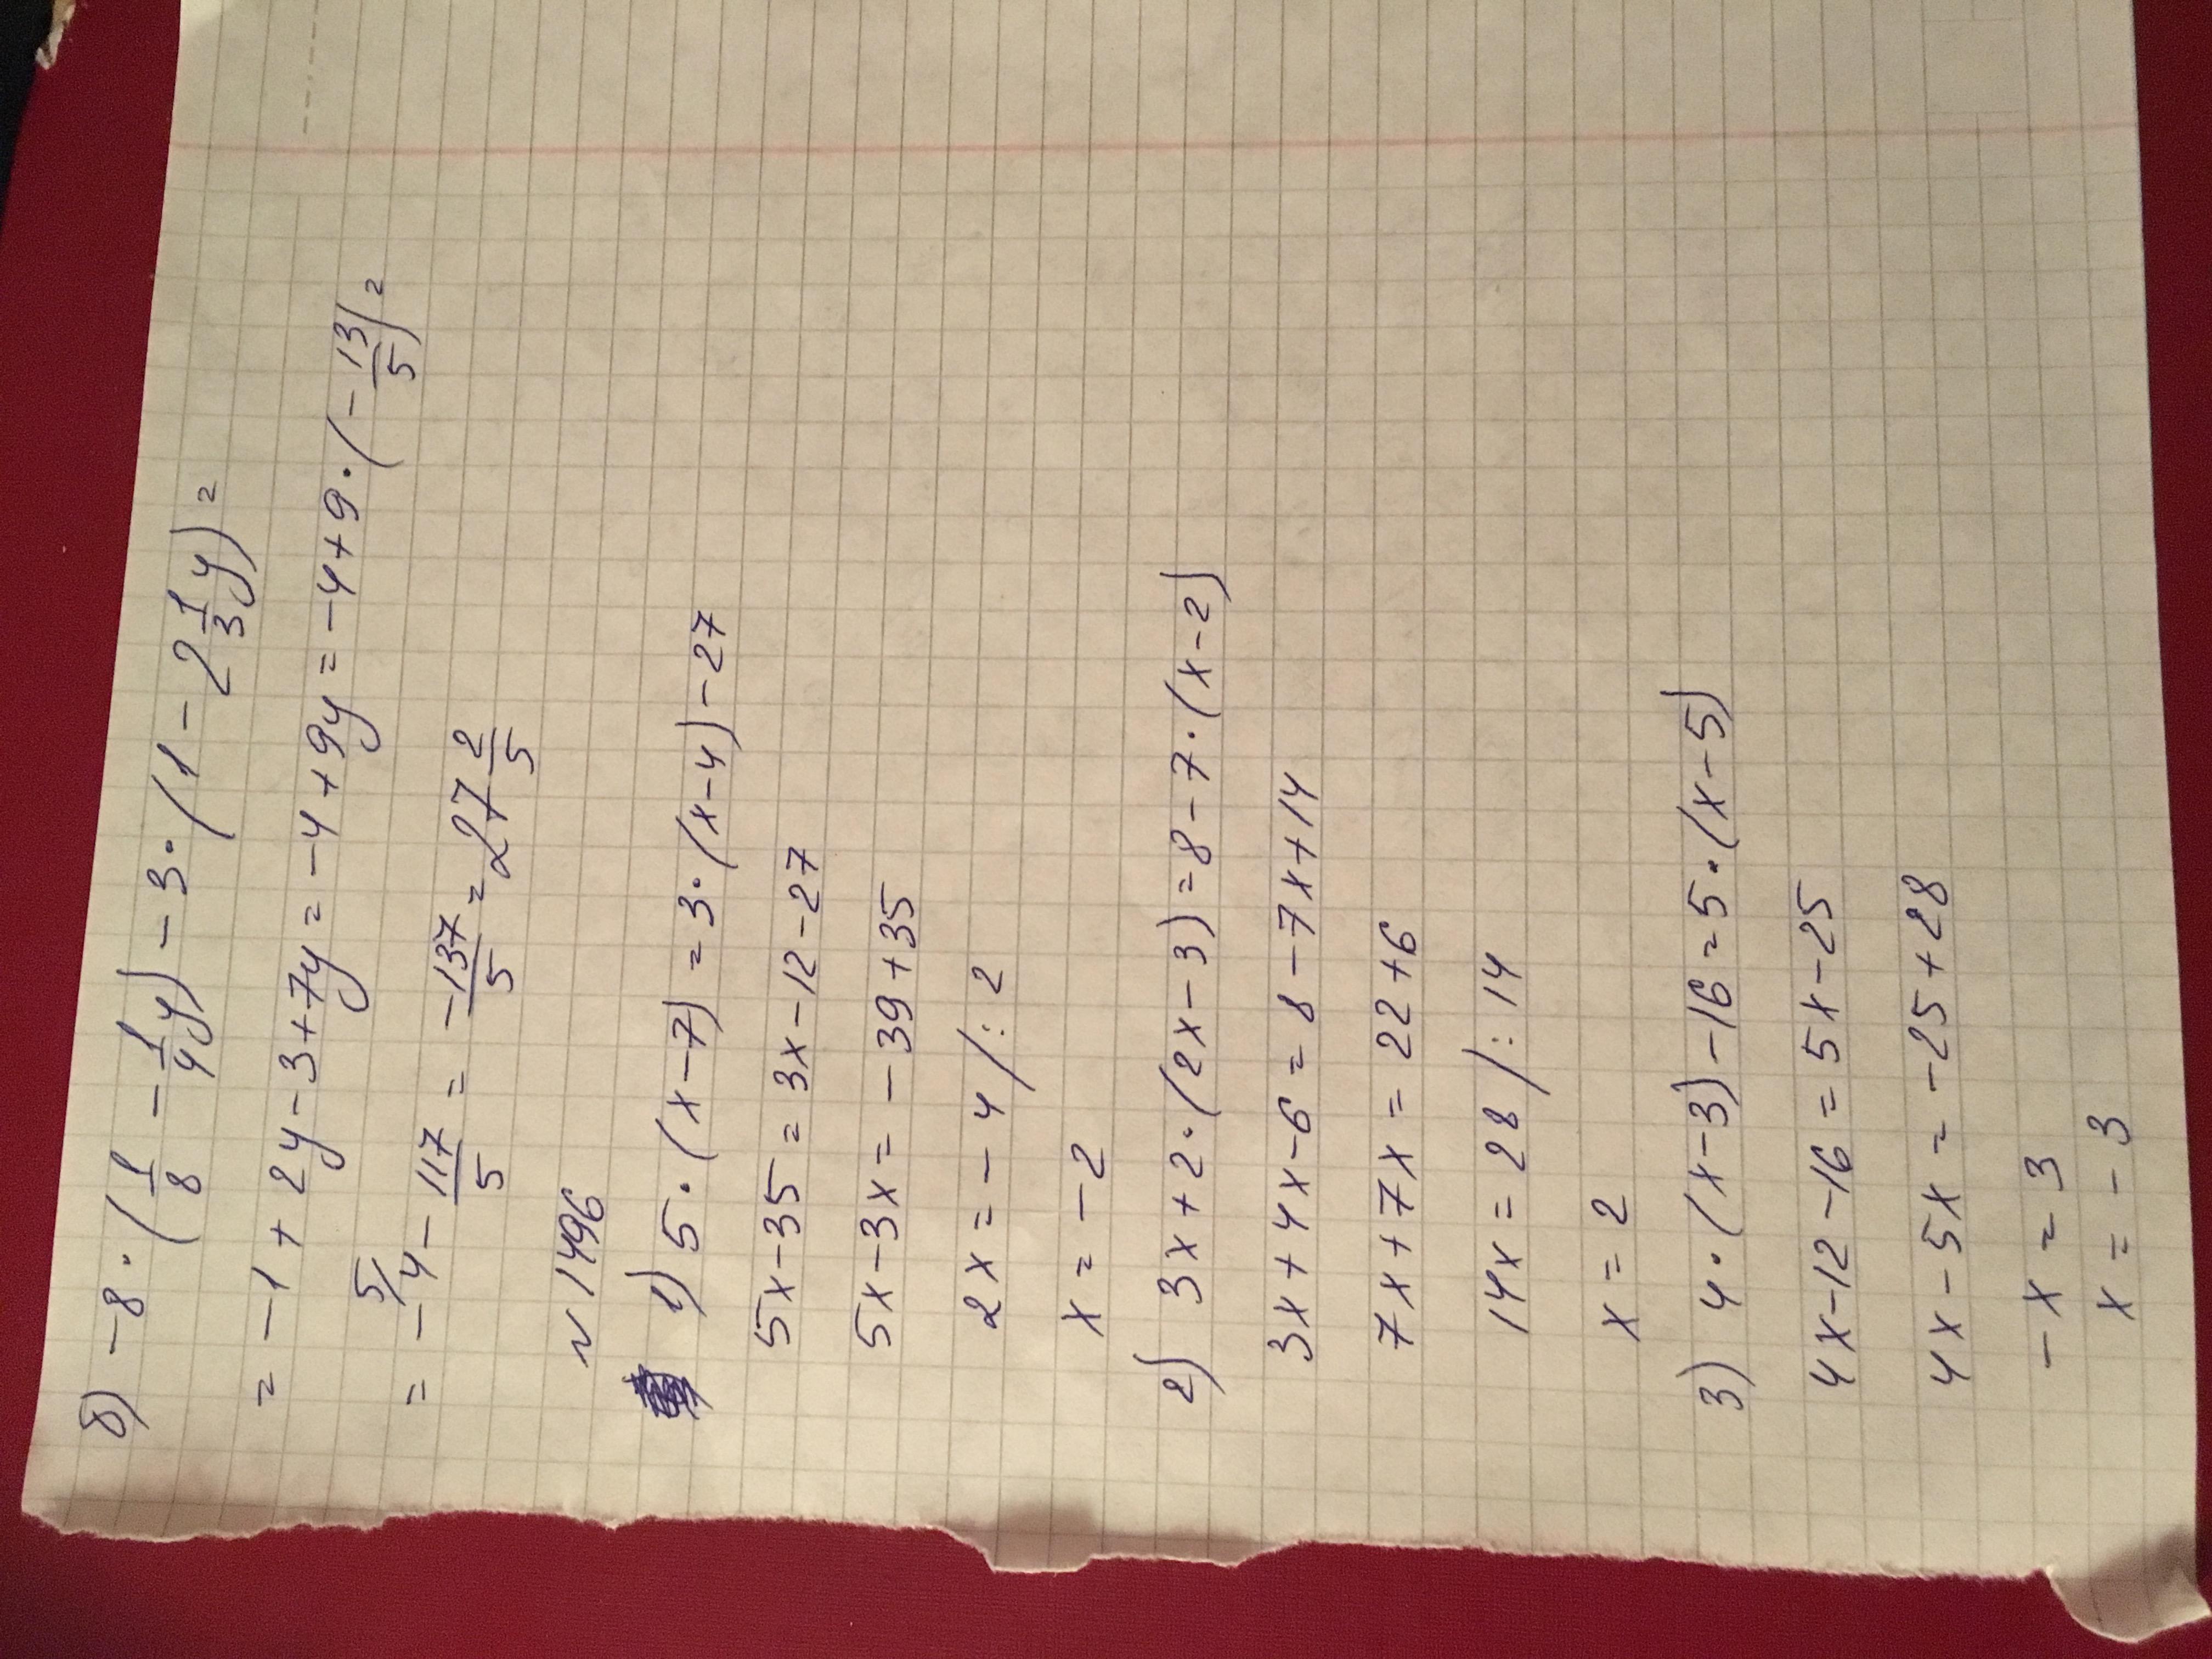 б) -8·(1/8 - 1/4y) - 3·(1 - 2 1/3y) =
= -1 + 2y - 3 + 7y = -4 + 9y = -4 + 9·(-13/5) =
= -4 5/ - 117/5 = -137/5 = 27 2/5
№1496
1) 5·(x-7) = 3·(x-4) - 27
5x - 35 = 3x - 12 - 27
5x - 3x = -39 + 35
2x = -4 /: 2
x = -2
2) 3x + 2·(2x - 3) = 8 - 7·(x - 2)
3x + 4x - 6 = 8 - 7x + 14
7x + 7x = 22 + 6
14x = 28 /: 14
x = 2
3) 4·(x - 3) - 16 = 5·(x - 5)
4x - 12 - 16 = 5x - 25
4x - 5x = -25 + 28
-x = 3
x = -3